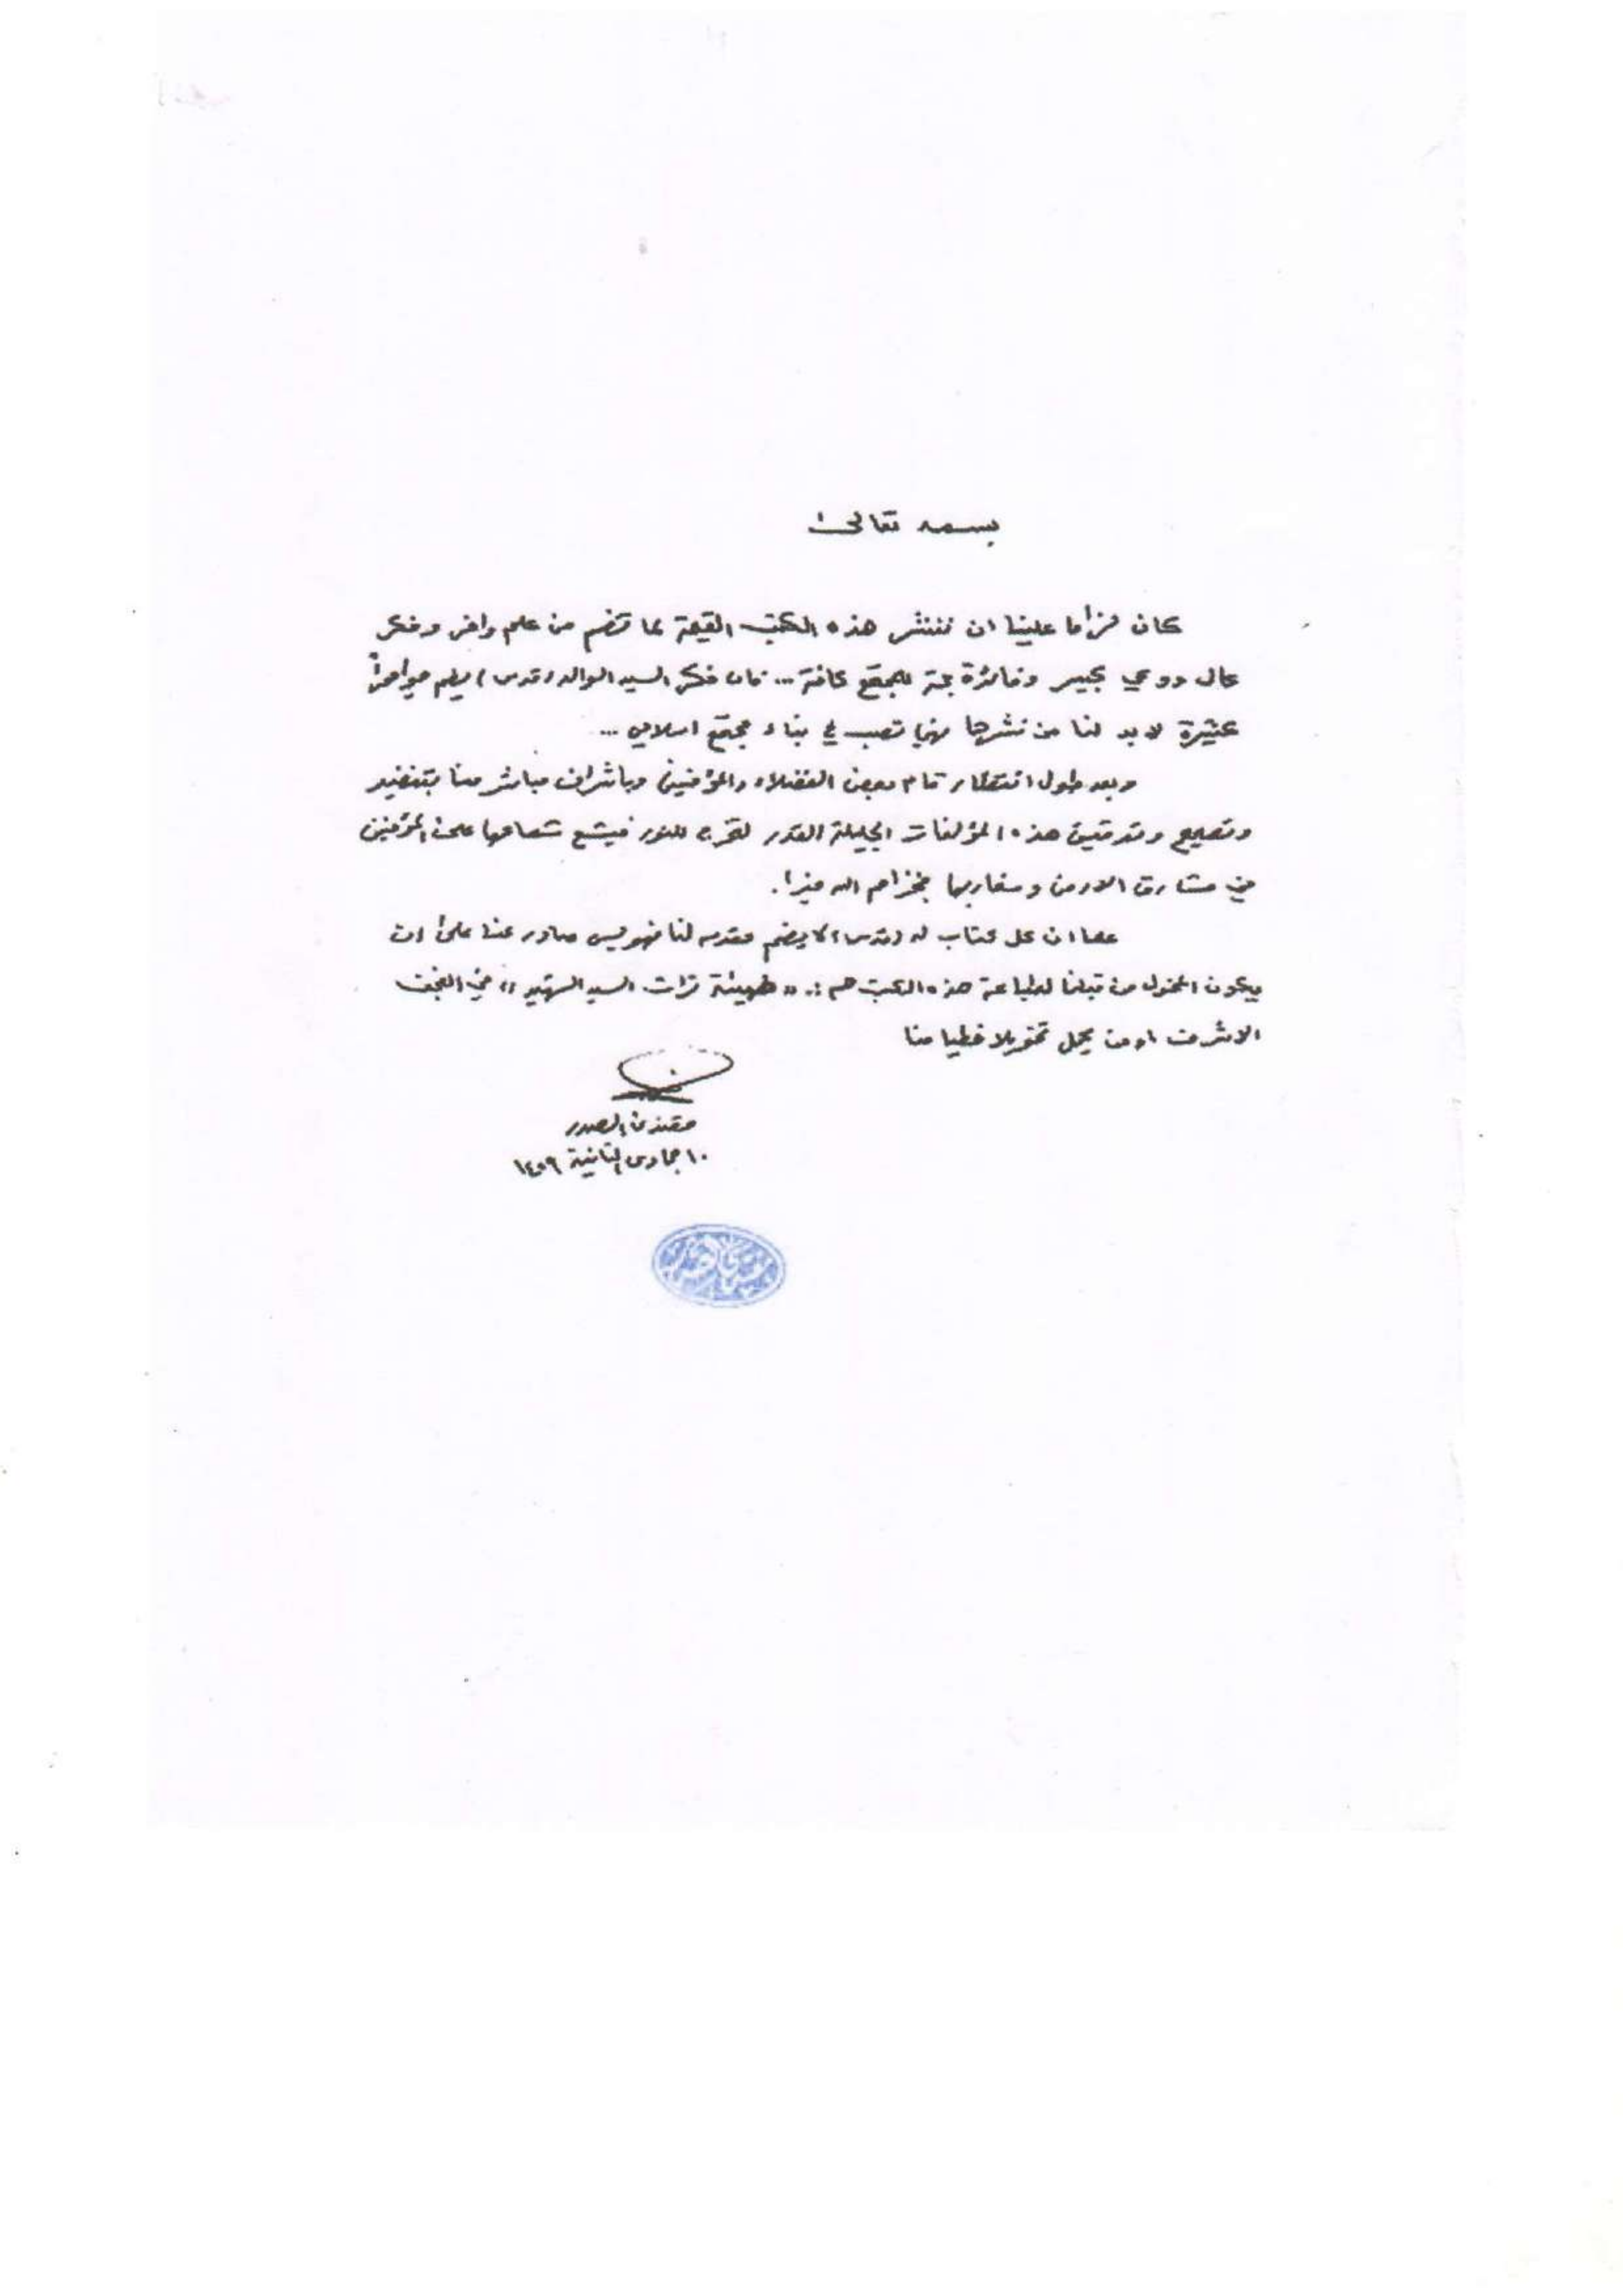 بسمه تعالى
كان لزاما علينا ان ننشر هذه الكتب القيمة لما تضم من علم وافر وفكر
عال ووعي كبير وفائدة جمة للمجتمع كافة ... فان فكر السيد الوالد (قدس) يضم جواهراً
كثيرة لا بد لنا من نشرها فهي تصب في بناء مجتمع اسلامي ...
وبعد طول انتظار قام بعض الفضلاء والمؤمنين وباشراف مباشر منا بتنضيد
وتصحيح وتدقيق هذه المؤلفات الجليلة القدر لتخرج للنور فيشع شعاعها على المؤمنين
في مشارق الارض ومغاربها فجزاهم الله خيرا.
كما ان كل كتاب له (قدس) لا يضم مقدمه لنا فهو ليس صادر عنا على ان
يكون المخول من قبلنا لطباعة هذه الكتب هم :. «هيئة تراث السيد الشهيد» في النجف
الاشرف او من يحمل تخويلا خطيا منا
مقتدى الصدر
١٠ جمادى الثانية ١٤٢٩